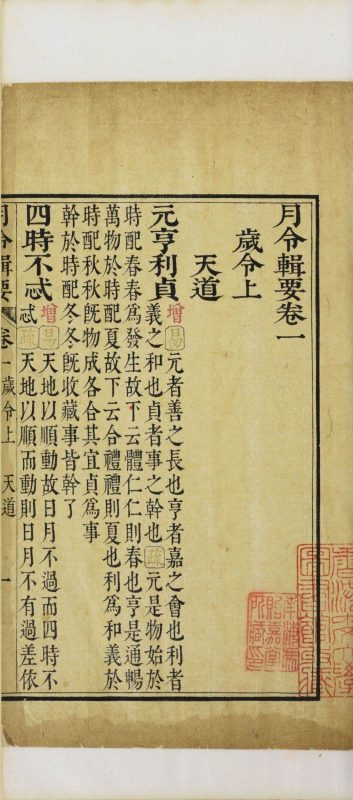 月令輯要卷一
歲令上
天道
元亨利貞增易元者善之長也亨者嘉之會也利者
義之和也貞者事之幹也疏元是物始於
時配春春爲發生故下云體仁仁則春也亨是通暢
萬物於時配夏故下云合禮禮則夏也利爲和義於
時配秋秋旣物成各合其宜貞爲事
幹於時配冬冬旣收藏事皆幹了
四時不忒增易天地以順動故日月不過而四時不
忒疏天地以順而動則日月不有過差依
月令輯要 卷一 歲令上 天道 一